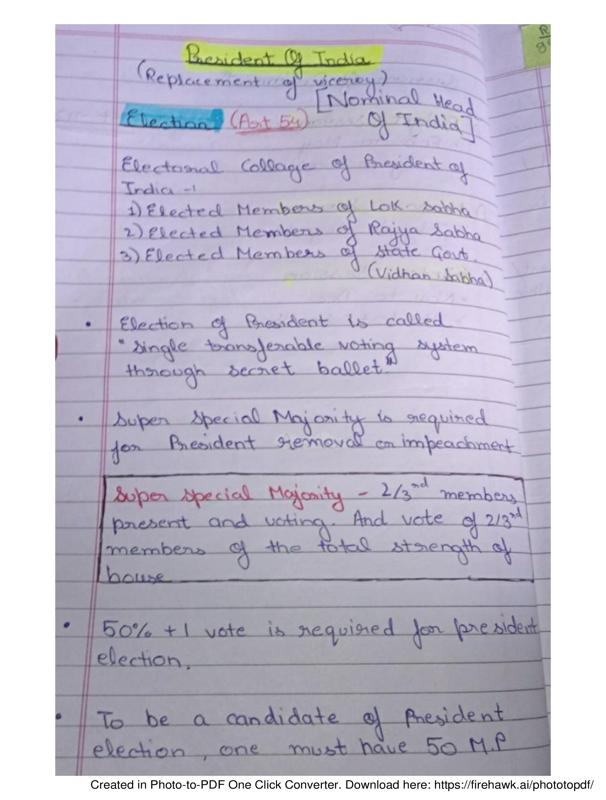 R
President Of India
(Replacement of viceroy)
[Nominal Head
Election (Art 54) Of India]
Electoral Collage of President of
India -
1) Elected Members of Lok Sabha
2) Elected Members of Rajya Sabha
3) Elected Members of State Govt.
(Vidhan Sabha)
• Election of President is called
"single transferable voting system
through secret ballet"
• Super Special Majority is required
for President removal or impeachment
Super Special Majority - 2/3rd members
present and voting. And vote of 2/3rd
members of the total strength of
house
• 50% + 1 vote is required for president
election.
• To be a candidate of President
election, one must have 50 M.P
Created in Photo-to-PDF One Click Converter. Download here: https://firehawk.ai/phototopdf/